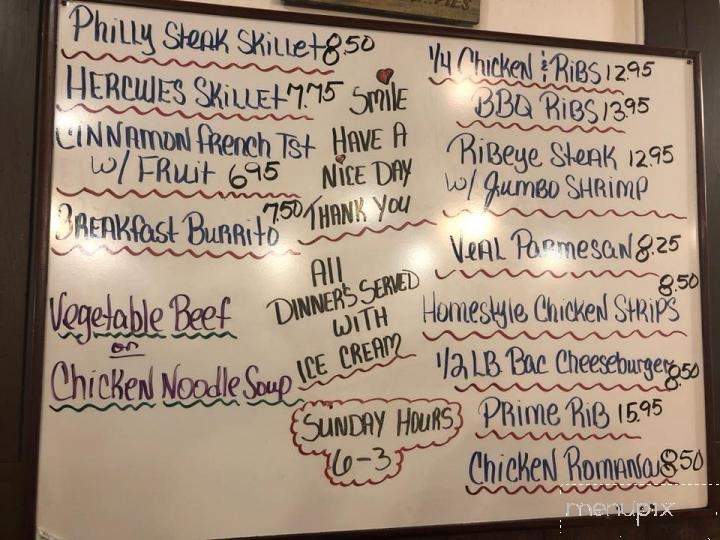 Philly Steak Skillet 8.50
HERCULES SKILLET 7.75
CINNAMON French Tst
W/ FRuit 6.95
BREAKfast BURRITO 7.50
Vegetable Beef
or
Chicken Noodle Soup
Smile
HAVE A
NICE DAY
THANK YOU
All
DINNER'S SERVED
WITH
ICE CREAM
SUNDAY HOURS
6-3
1/4 Chicken & RiBS 12.95
BBQ RiBS 13.95
RiBeye Steak 12.95
W/ Jumbo SHRIMP
VeAL PaRmesaN 8.25
8.50
Homestyle Chicken StRiPS
1/2 LB. Bac Cheeseburger 8.50
PRime RiB 15.95
Chicken Romano 8.50
menupix